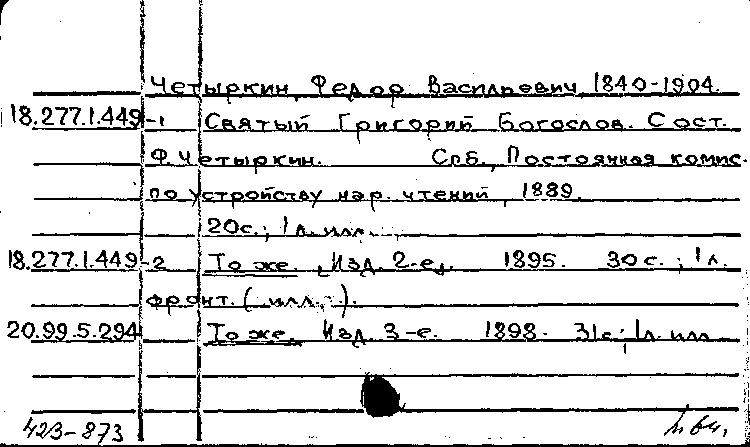 Четыркин, Федор Васильевич, 1840-1904.
18.277.1.449-1 Святый Григорий Богослов. Сост.
Ф. Четыркин. Спб., Постоянная комис.
по устройству нар. чтений, 1889.
20 с.; 1 л. илл.
18.277.1.449-2 То же. Изд. 2-е. 1895. 30 с.; 1 л.
фронт. (илл.).
20.99.5.294 То же. Изд. 3-е. 1898. 31 с.; 1 л. илл.
423-873